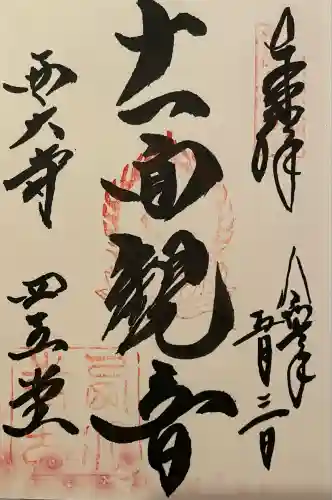 奉拝
令和元年
五月三日
十一面観音
西大寺
四王堂